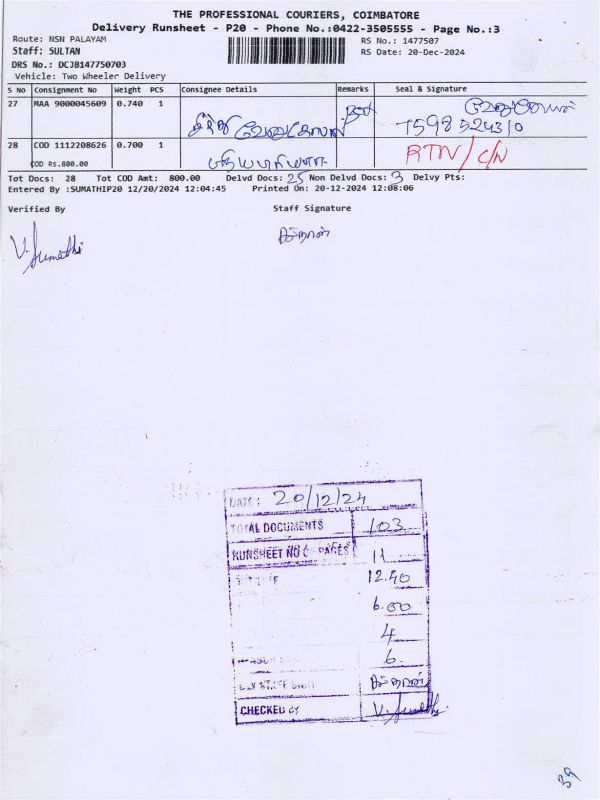 THE PROFESSIONAL COURIERS, COIMBATORE
Delivery Runsheet - P20 - Phone No.:0422-3505555 - Page No.:3
Route: NSN PALAYAM
RS No.: 1477507
Staff: SULTAN
RS Date: 20-Dec-2024
DRS No.: DCJB147750703
Vehicle: Two Wheeler Delivery
S No Consignment No Weight PCS Consignee Details Remarks Seal & Signature
27 MAA 9000045609 0.740 1
7598524310
28 COD 1112208626 0.700 1 RTN/C/N
COD RS.800.00
Tot Docs: 28 Tot COD Amt: 800.00 Delvd Docs: 25 Non Delvd Docs: 3 Delvy Pts:
Entered By :SUMATHIP20 12/20/2024 12:04:45 Printed On: 20-12-2024 12:08:06
Verified By Staff Signature
V. Sumathi
DATE: 20/12/24
TOTAL DOCUMENTS 103
RUNSHEET NO OF PAGES 11
12.40
6.00
4
6.
CHECKED BY V. Sumathi
39